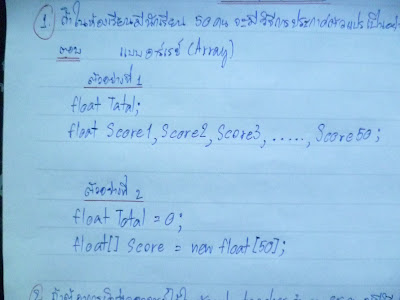 1. ถ้าในห้องเรียนมีนักเรียน 50 คน จะมีวิธีการประกาศตัวแปรเป็น
ตอบ แบบอาร์เรย์ (Array)
ตัวอย่างที่ 1
float Tatal;
float Score1, Score2, Score3, ....., Score50;
ตัวอย่างที่ 2
float Total = 0;
float[] Score = new float[50];